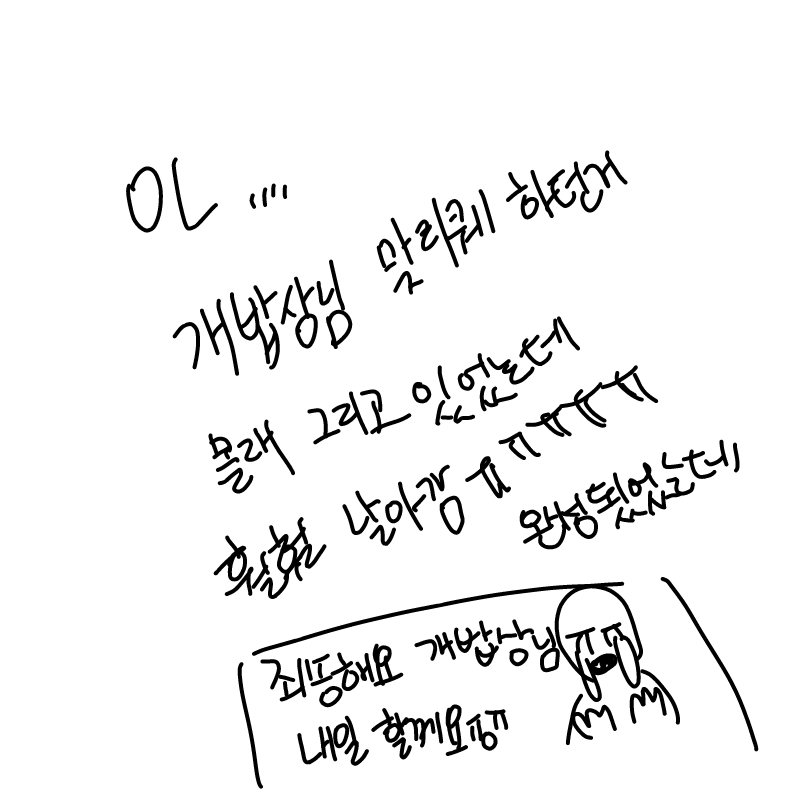 아 ....
개밥상님 말리퀘 하던거
몰래 그리고 있었는데
훨훨 날아감 ㅠㅠㅠㅠㅠ
완성됐었는데
죄송해요 개밥상님
내일 할께요